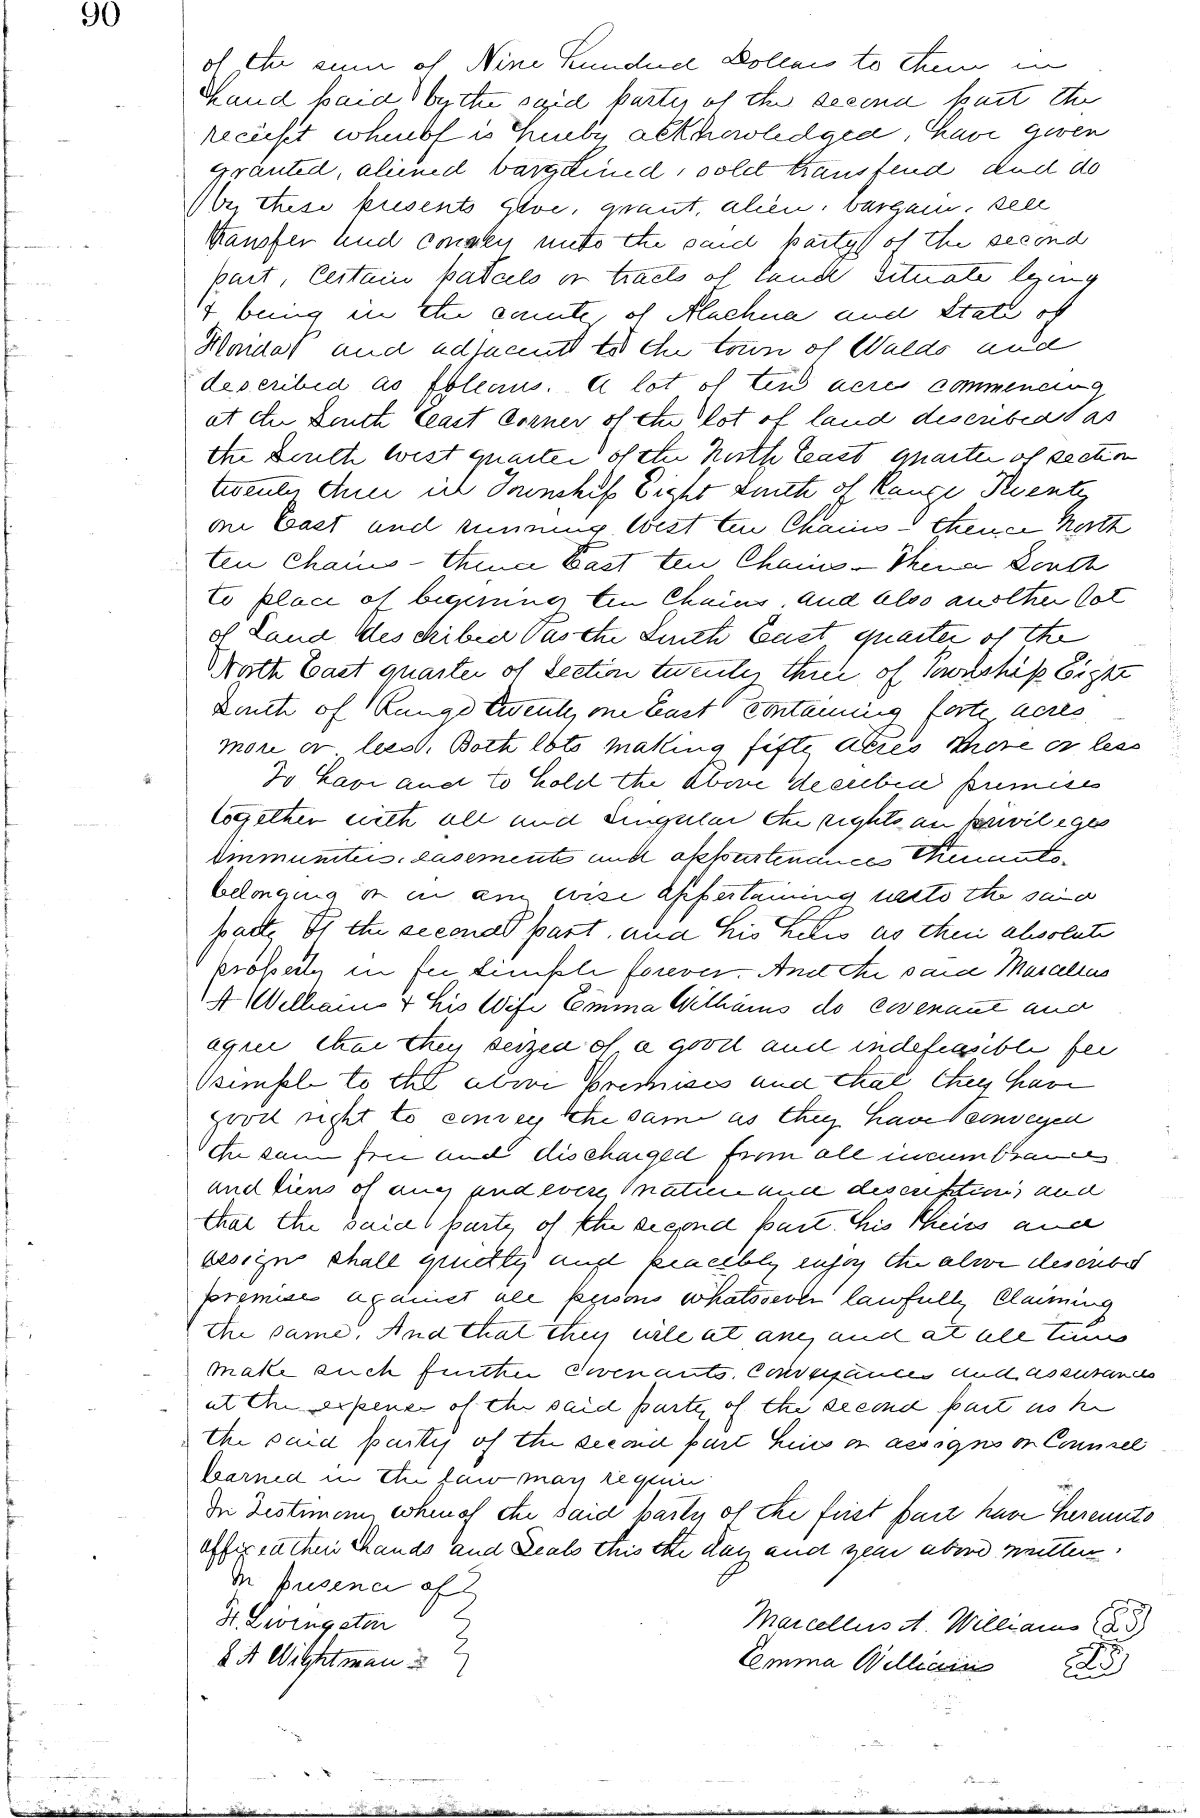 90
of the sum of Nine Hundred Dollars to them in
hand paid by the said party of the second part the
reciept whereof is hereby acknowledged, have given
granted, aliened bargained, sold transferd and do
by these presents give, grant, alien, bargain, sell
transfer and convey unto the said party of the second
part, Certain parcels or tracts of land situate lying
& being in the county of Alachua and State of
Florida and adjacent to the town of Waldo and
described as follows. A lot of ten acres commencing
at the South East Corner of the lot of land described as
the South west quarter of the North East quarter of section
twenty three in Township Eight South of Range Twenty
one East and running West ten Chains - thence North
ten chains - thence East ten Chains - Thence South
to place of begining ten Chains, and also another lot
of Land described as the South East quarter of the
North East quarter of Section twenty three of Township Eight
South of Range twenty one East containing forty acres
more or less. Both lots making fifty acres more or less
To have and to hold the above described premises
together with all and Singular the rights an privileges
immunities, easements and appurtenances thereunto
belonging or in any wise appertaining unto the said
party of the second part, and his heirs as their absolute
property in fee simple forever. And the said Marcellus
A Williams & his Wife Emma Williams do covenant and
agree that they seized of a good and indefeasible fee
simple to the above premises and that they have
good right to convey the same as they have conveyed
the same free and discharged from all incumbrances
and liens of any and every nature and description, and
that the said party of the second part his heirs and
assigns shall quietly and peacebly enjoy the above described
premises against all persons whatsoever lawfully Claiming
the same. And that they will at any and at all times
make such further covenants, conveyances and assurances
at the expense of the said party of the second part as he
the said party of the second part heirs or assigns or Counsel
learned in the law may require
In Testimony whereof the said party of the first part have hereunto
affixed their hands and Seals this the day and year above written.
In presence of
H. Livingston
S A Wightman
Marcellus A. Williams LS
Emma Williams LS